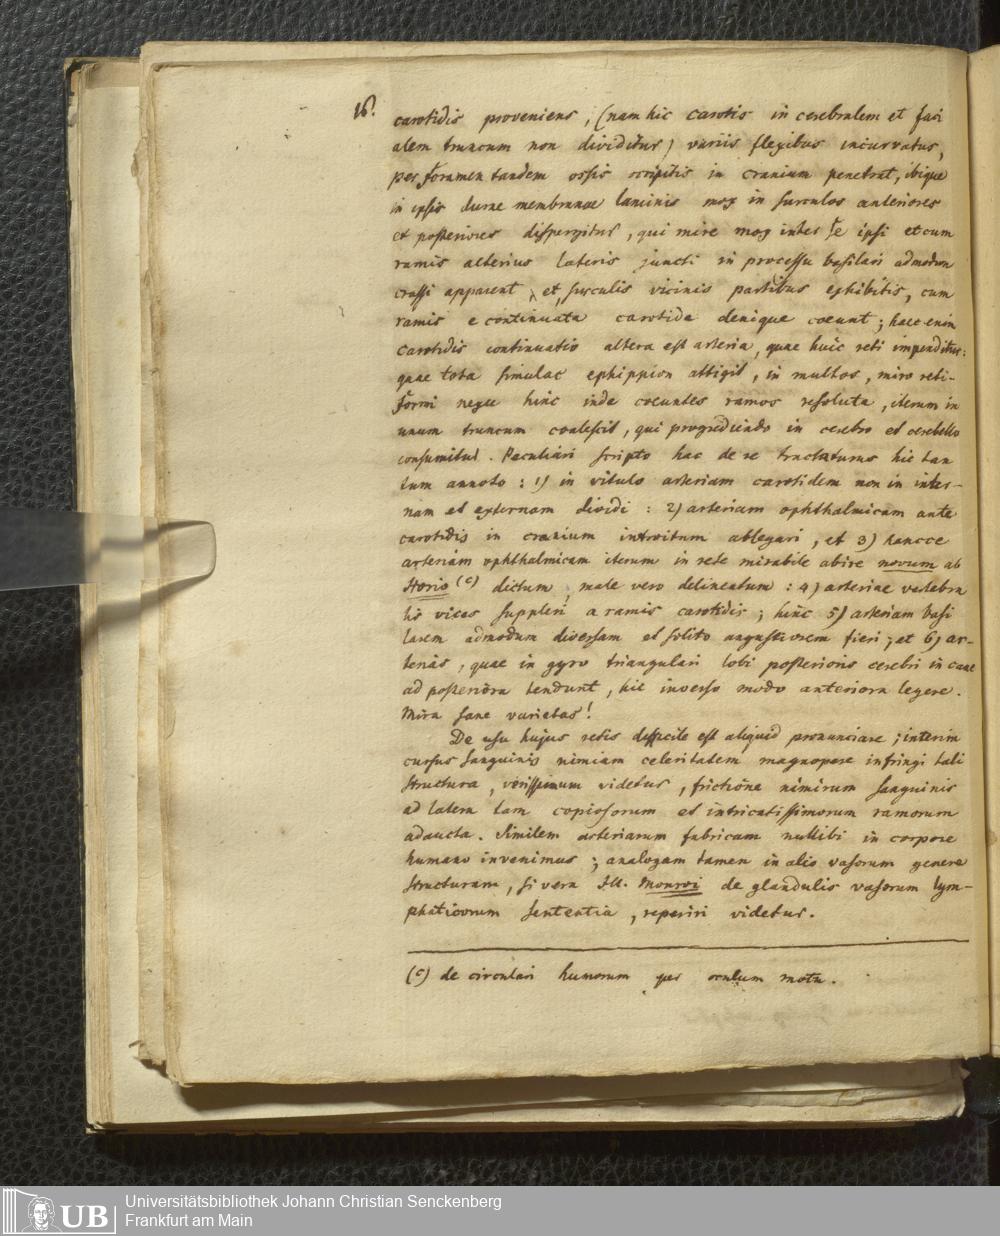 16.
carotidis proveniens, (nam hic carotis in cerebralem et faci
alem truncum non dividitur) variis flexibus incurvatus,
per foramen tandem ossis occipitis in cranium penetrat, ibique
in ipsis durae membranae laminis mox in surculos anteriores
et posteriores dispergitur, qui mire mox inter se ipsi et cum
ramis alterius lateris juncti in processu basilari admodum
crassi apparent, et, surculis vicinis partibus exhibitis, cum
ramis e continuata carotide denique coeunt; haec enim
carotidis continuatio altera est arteria, quae huic reti impenditur:
quae tota simulac ephippion attigit, in multos, miro reti-
formi nexu hinc inde coeuntes ramos resoluta, iterum in
unum truncum coalescit, qui progrediendo in cerebro et cerebello
consumitur. Peculiari scripto hac de re tractaturus hic tan
tum annoto: 1) in vitulo arteriam carotidem non in inter-
nam et externam dividi: 2) arteriam ophthalmicam ante
carotidis in cranium introitum ablegari, et 3) hancce
arteriam ophthalmicam iterum in rete mirabile abire novum ab
Hovio (c) dictum, male vero delineatum: 4) arteriae vertebra
lis vices suppleri a ramis carotidis; hinc 5) arteriam basi
larem admodum diversam et solito angustiorem fieri; et 6) ar-
terias, quae in gyro triangulari lobi posterioris cerebri in cane
ad posteriora tendunt, hic inverso modo anteriora legere.
Mira sane varietas!
De usu hujus retis difficile est aliquid pronunciare; interim
cursus sanguinis nimiam celeritatem magnopere infringi tali
structura, verissimum videtur, frictione nimirum sanguinis
ad latera tam copiosorum et intricatissimorum ramorum
adaucta. Similem arteriarum fabricam nullibi in corpore
humano invenimus; analogam tamen in alio vasorum genere
structuram, si vera Ill. Monroi de glandulis vasorum lym-
phaticorum sententia, reperiri videtur.
(c) de circulari humorum per oculum motu.
UB
Universitätsbibliothek Johann Christian Senckenberg
Frankfurt am Main